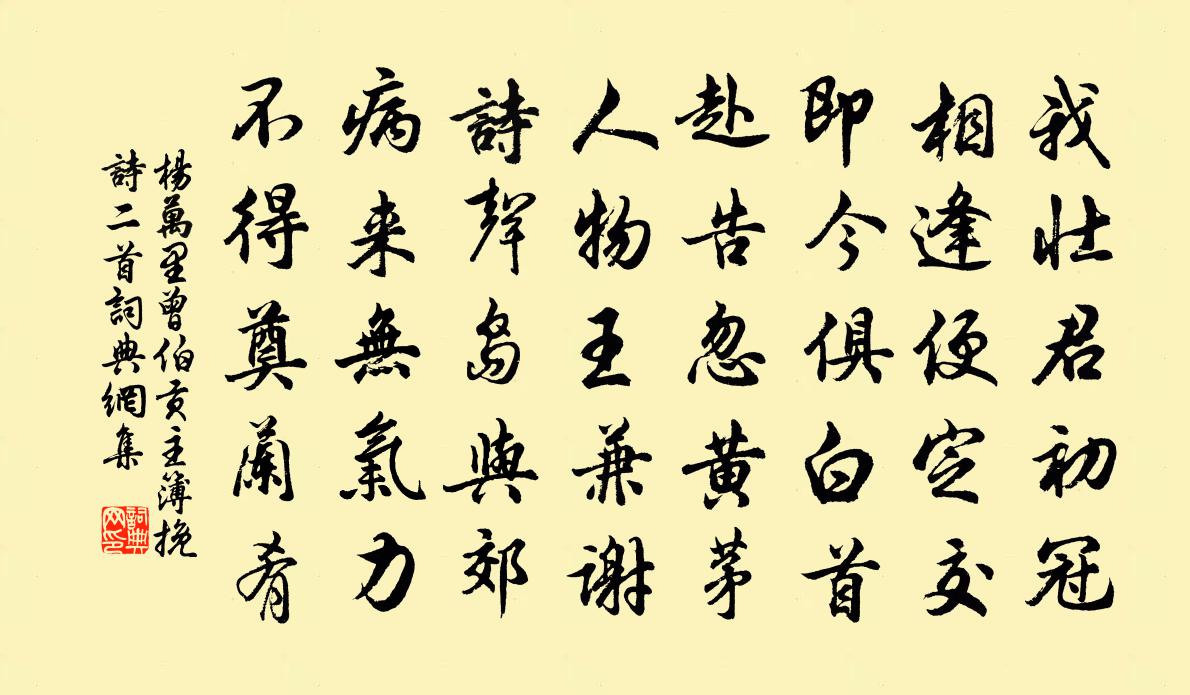 我壯君初冠
相逢便定交
即今俱白首
赴告忽黃茅
人物王兼謝
詩聲島與郊
病来無氣力
不得奠蘭肴
楊萬里曾伯貢主簿挽
詩二首詞典網集
詞典
网印